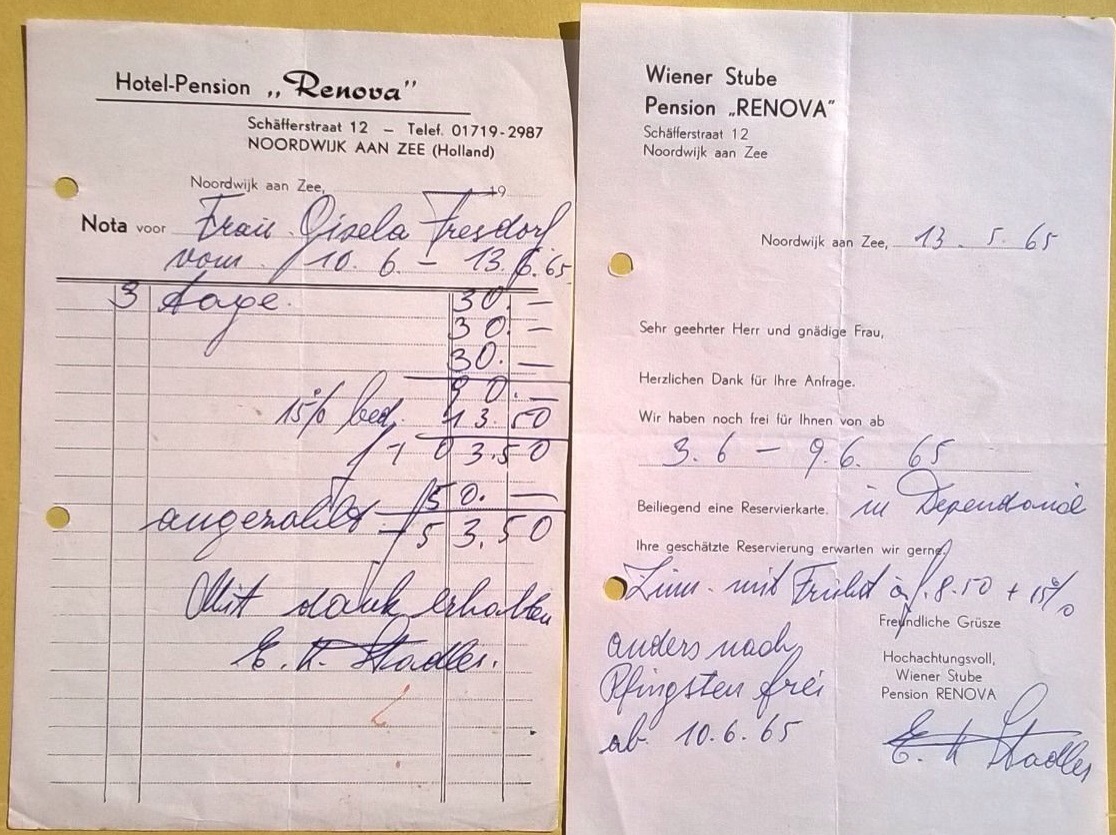 Hotel-Pension „Renova"
Schäfferstraat 12 – Telef. 01719-2987
NOORDWIJK AAN ZEE (Holland)
Noordwijk aan Zee, 19
Nota voor Frau Gisela Fresdorf
vom 10. 6. – 13. 6. 65
3 tage. 30. —
30. —
30. —
90. —
15% bed. 13.50
f 103.50
angezahlt f 50. —
f 53.50
Mit dank erhalten
E. K. Stadler.
Wiener Stube
Pension „RENOVA"
Schäfferstraat 12
Noordwijk aan Zee
Noordwijk aan Zee, 13. 5. 65
Sehr geehrter Herr und gnädige Frau,
Herzlichen Dank für Ihre Anfrage.
Wir haben noch frei für Ihnen von ab
3.6 – 9.6. 65
Beiliegend eine Reservierkarte. in Dependance
Ihre geschätzte Reservierung erwarten wir gerne.
Zimm. mit Frühst à f. 8.50 + 15%
Freundliche Grüsze
anders nach
Pfingsten frei
ab. 10.6.65
Hochachtungsvoll,
Wiener Stube
Pension RENOVA
E. K Stadler